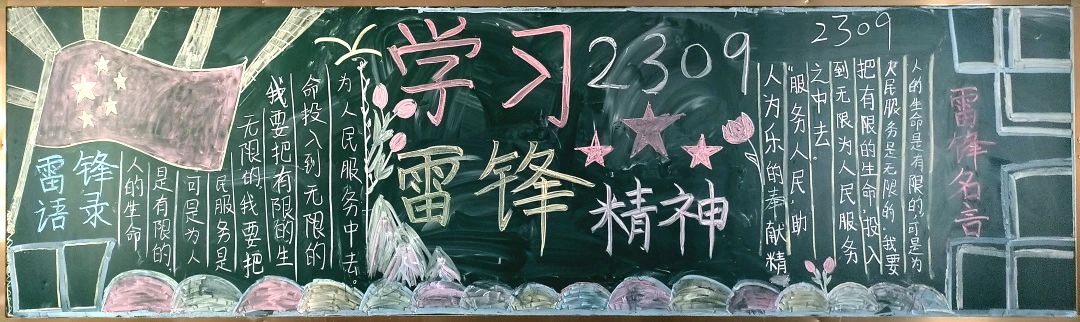 雷锋
语录
人的生命
是有限的
可是为人
民服务是
无限的,我要把
我要把有限的生
命投入到无限的
为人民服务中去。
学习
2309
雷锋
精神
2309
雷锋名言
人的生命是有限的,可是为
人民服务是无限的,我要
把有限的生命,投入
到无限为人民服务
之中去。
“服务人民,助
人为乐的奉献精